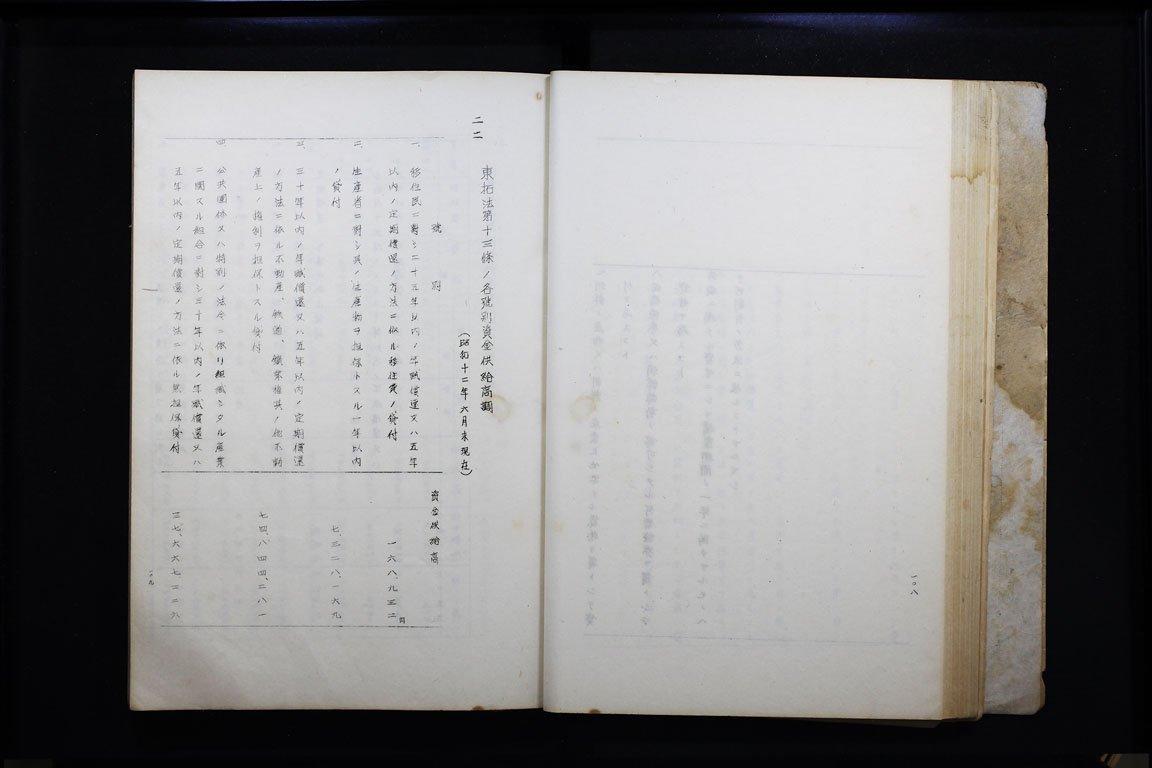 一〇八
二二
東拓法第十三條ノ各號別資金供給高調
(昭和十二年六月末現在)
號別
資金供給高
一、移住民ニ對シ二十五年以內ノ年賦償還又ハ五年
以內ノ定期償還ノ方法ニ依ル移住費ノ貸付
一六八、九三二
円
二、生産者ニ對シ其ノ生産物ヲ担保トスル一年以內
ノ貸付
七、三二八、一六九
三、三十年以內ノ年賦償還又ハ五年以內ノ定期償還
ノ方法ニ依ル不動産、鉄道、鑛業權其ノ他不動
産上ノ權利ヲ担保トスル貸付
七四八、四四二、二八一
四、公共團体又ハ特別ノ法令ニ依リ組織シタル産業
ニ關スル組合ニ對シ三十年以內ノ年賦償還又ハ
五年以內ノ定期償還ノ方法ニ依ル無担保貸付
一〇九